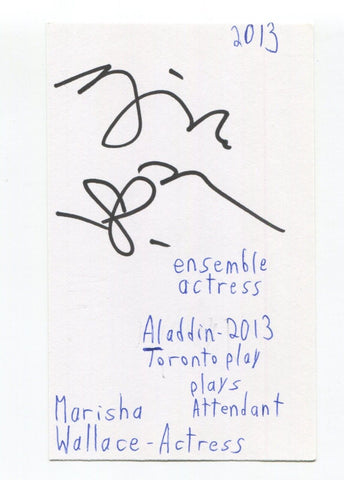 2013
ensemble
actress
Aladdin-2013
Toronto play
plays
Marisha Attendant
Wallace-Actress